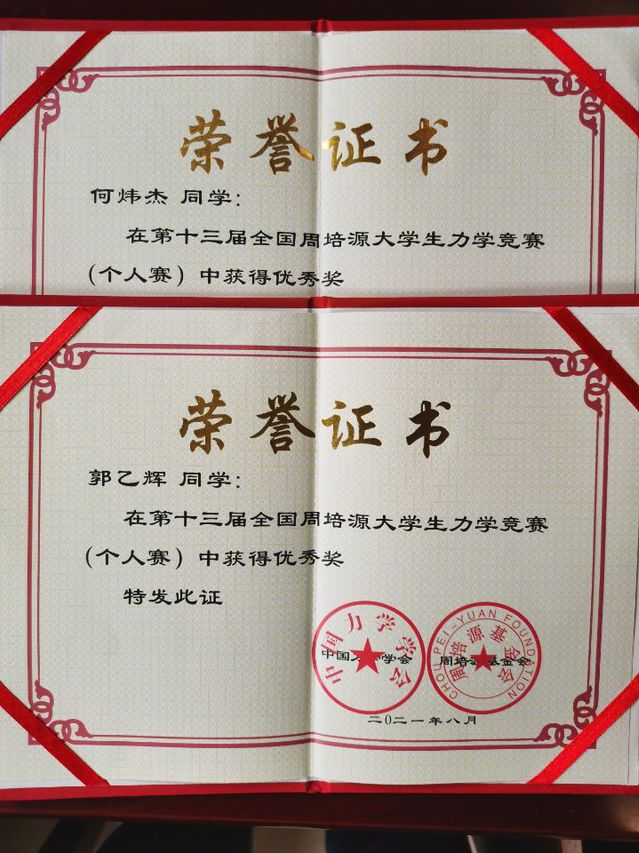 荣誉证书
何炜杰 同学：
在第十三届全国周培源大学生力学竞赛
（个人赛）中获得优秀奖
荣誉证书
郭乙辉 同学：
在第十三届全国周培源大学生力学竞赛
（个人赛）中获得优秀奖
特发此证
中国力学学会
周培源基金会
中国力学学会 周培源基金会
CHOU PEI-YUAN FOUNDATION
二0二一年八月